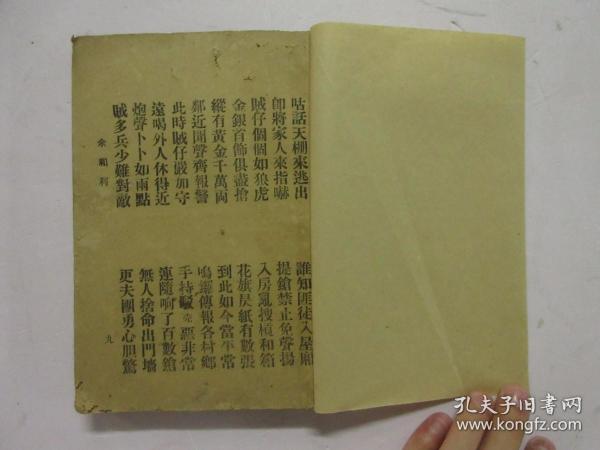 咕話天棚來逃出　誰知匪徒入屋廂
即將家人來指嚇　提鎗禁止免聲揚
賊仔個個如狼虎　入房亂搜槓和箱
金銀首飾俱盡搶　花旗昃紙有數張
縱有黃金千萬両　到此如今當平常
鄰近聞聲齊報警　鳴鑼傳報各村鄉
此時賊仔嚴加守　手持駁壳惡非常
遠喝外人休得近　連隨响了百數鎗
炮聲卜卜如雨點　無人捨命出門墻
賊多兵少難對敵　更夫團勇心胆驚
余範利
九
孔夫子旧书网
www.kongfz.com